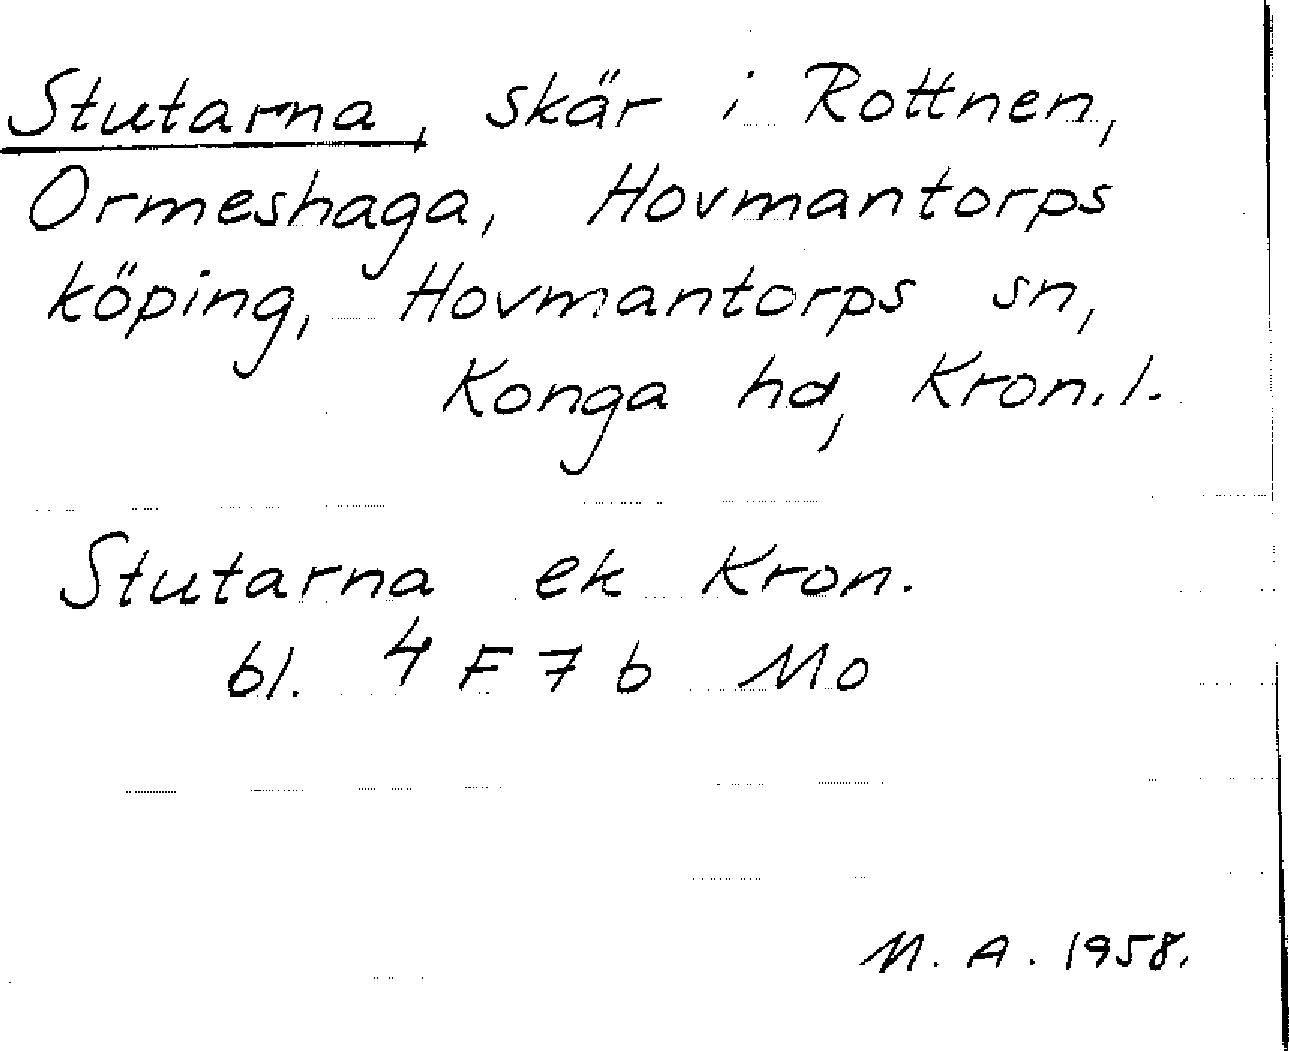 Stutarna, skär i Rottnen,
Ormeshaga, Hovmantorps
köping, Hovmantorps sn,
Konga hd, Kron.l.
Stutarna ek Kron.
bl. 4 F 7 b Mo
M. A. 1958.